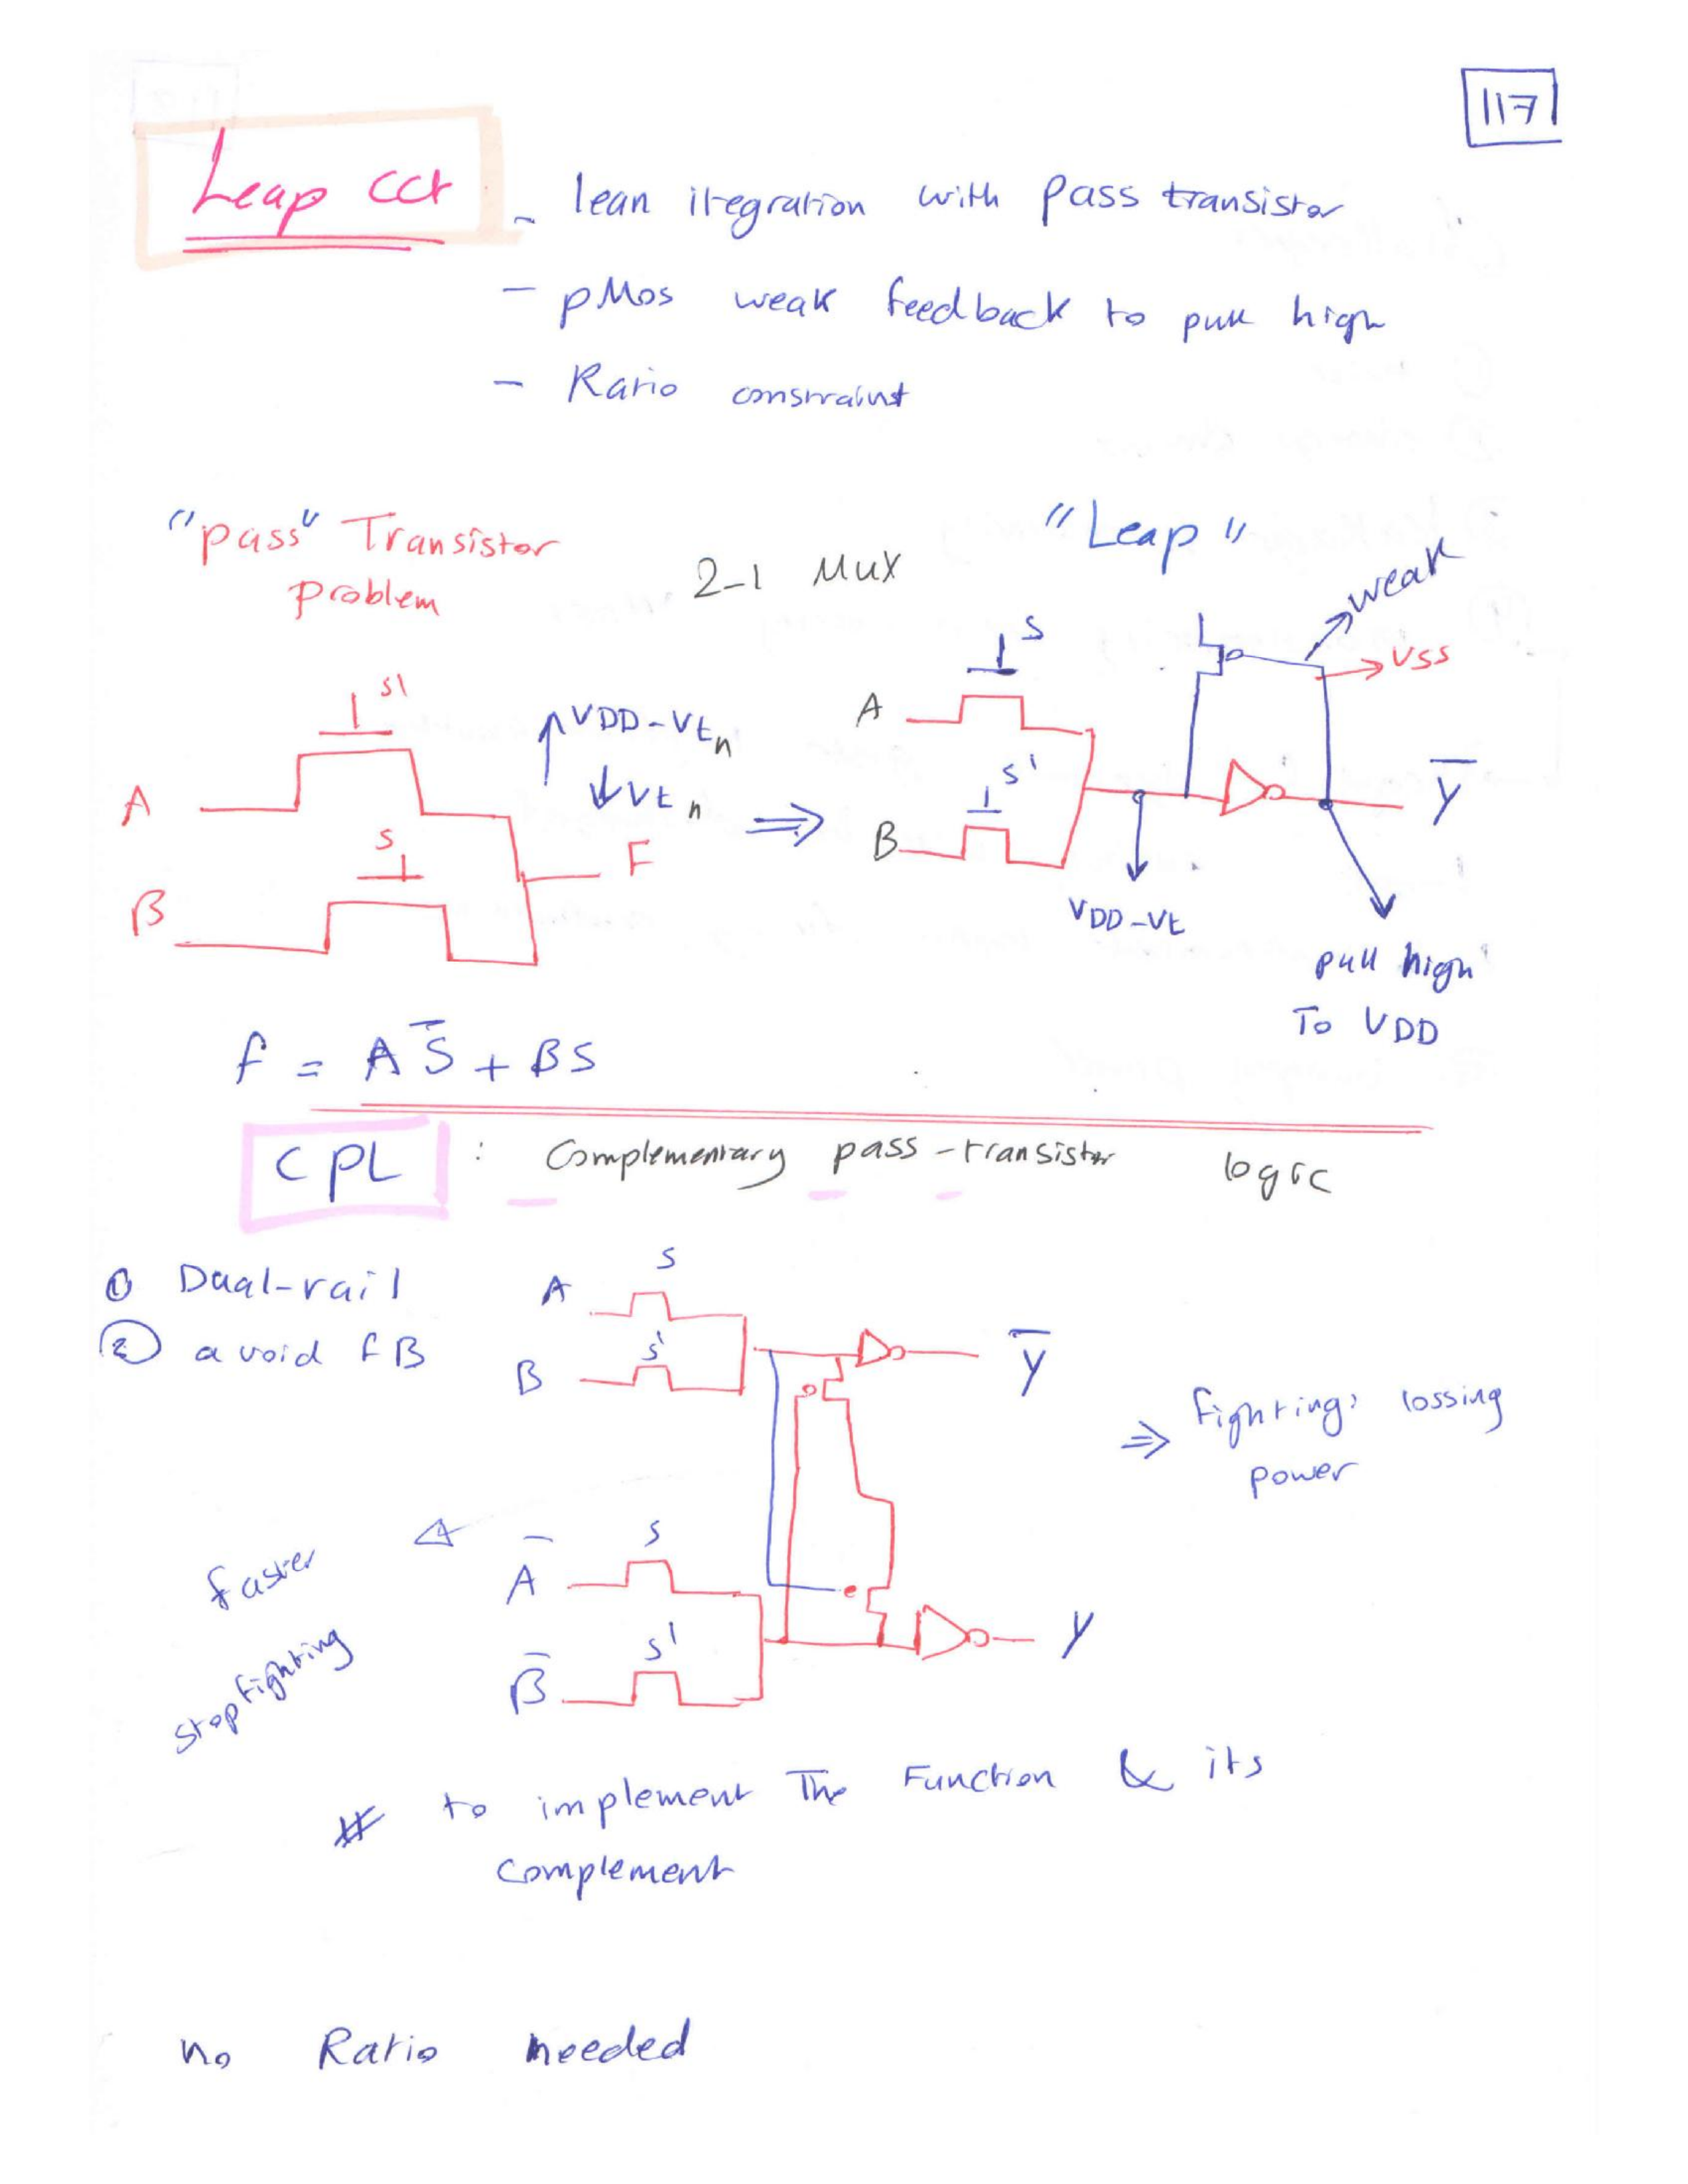 117
Leap cct
- lean itegration with pass transistor
- pMos weak feedback to pull high
- Ratio constraint
"pass" Transistor
problem
2-1 MUX
"Leap"
weak
VSS
S'
A
S
B
F
VDD-Vtn
Vtn
S
A
S'
B
VDD-Vt
Y̅
pull high
To VDD
f = A S̅ + BS
CPL : Complementary pass-transistor logic
① Dual-rail
② avoid fB
S
A
S'
B
Y̅
⇒ fighting: lossing
power
faster
stop fighting
S
A̅
S'
B̅
Y
# to implement The Function & its
complement
no Ratio needed